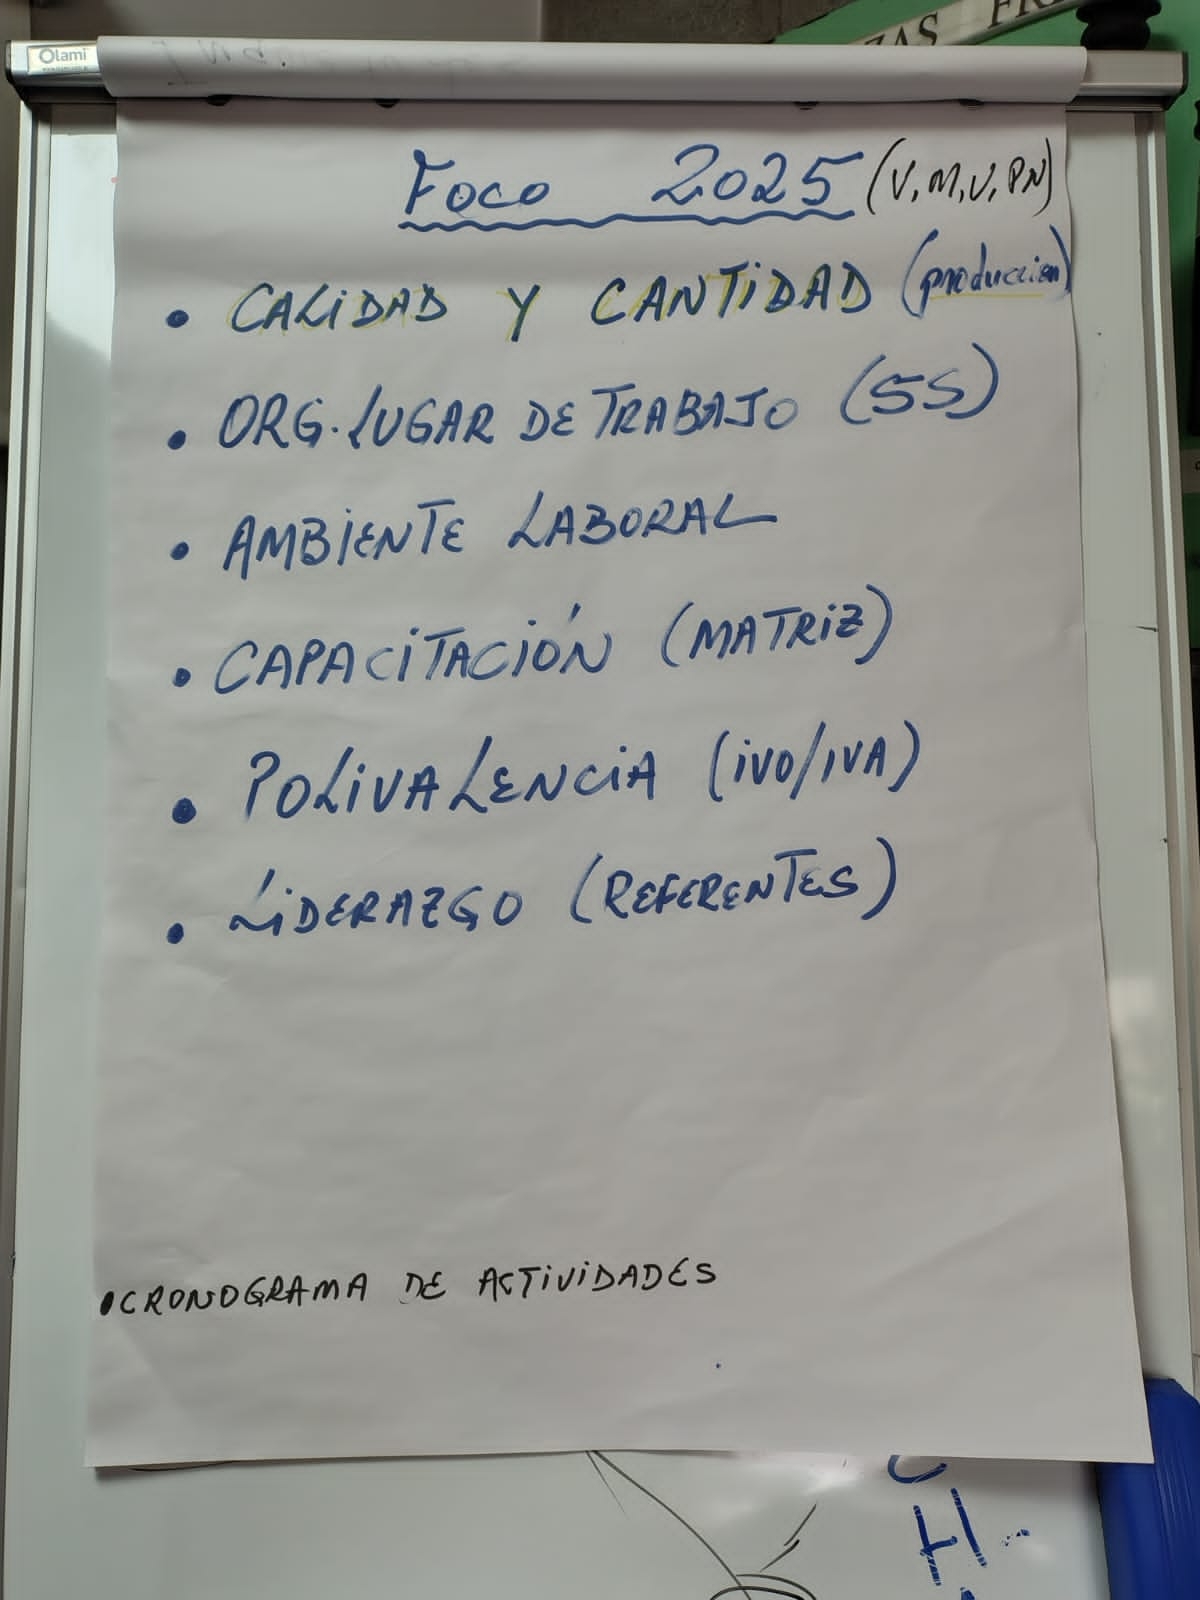 Olami
ZAS FR
Foco 2025 (V,M,V,PN)
• CALIDAD Y CANTIDAD (produccion)
• ORG. LUGAR DE TRABAJO (5S)
• AMBIENTE LABORAL
• CAPACITACIÓN (MATRIZ)
• POLIVALENCIA (IVO/IVA)
• LIDERAZGO (REFERENTES)
• CRONOGRAMA DE ACTIVIDADES